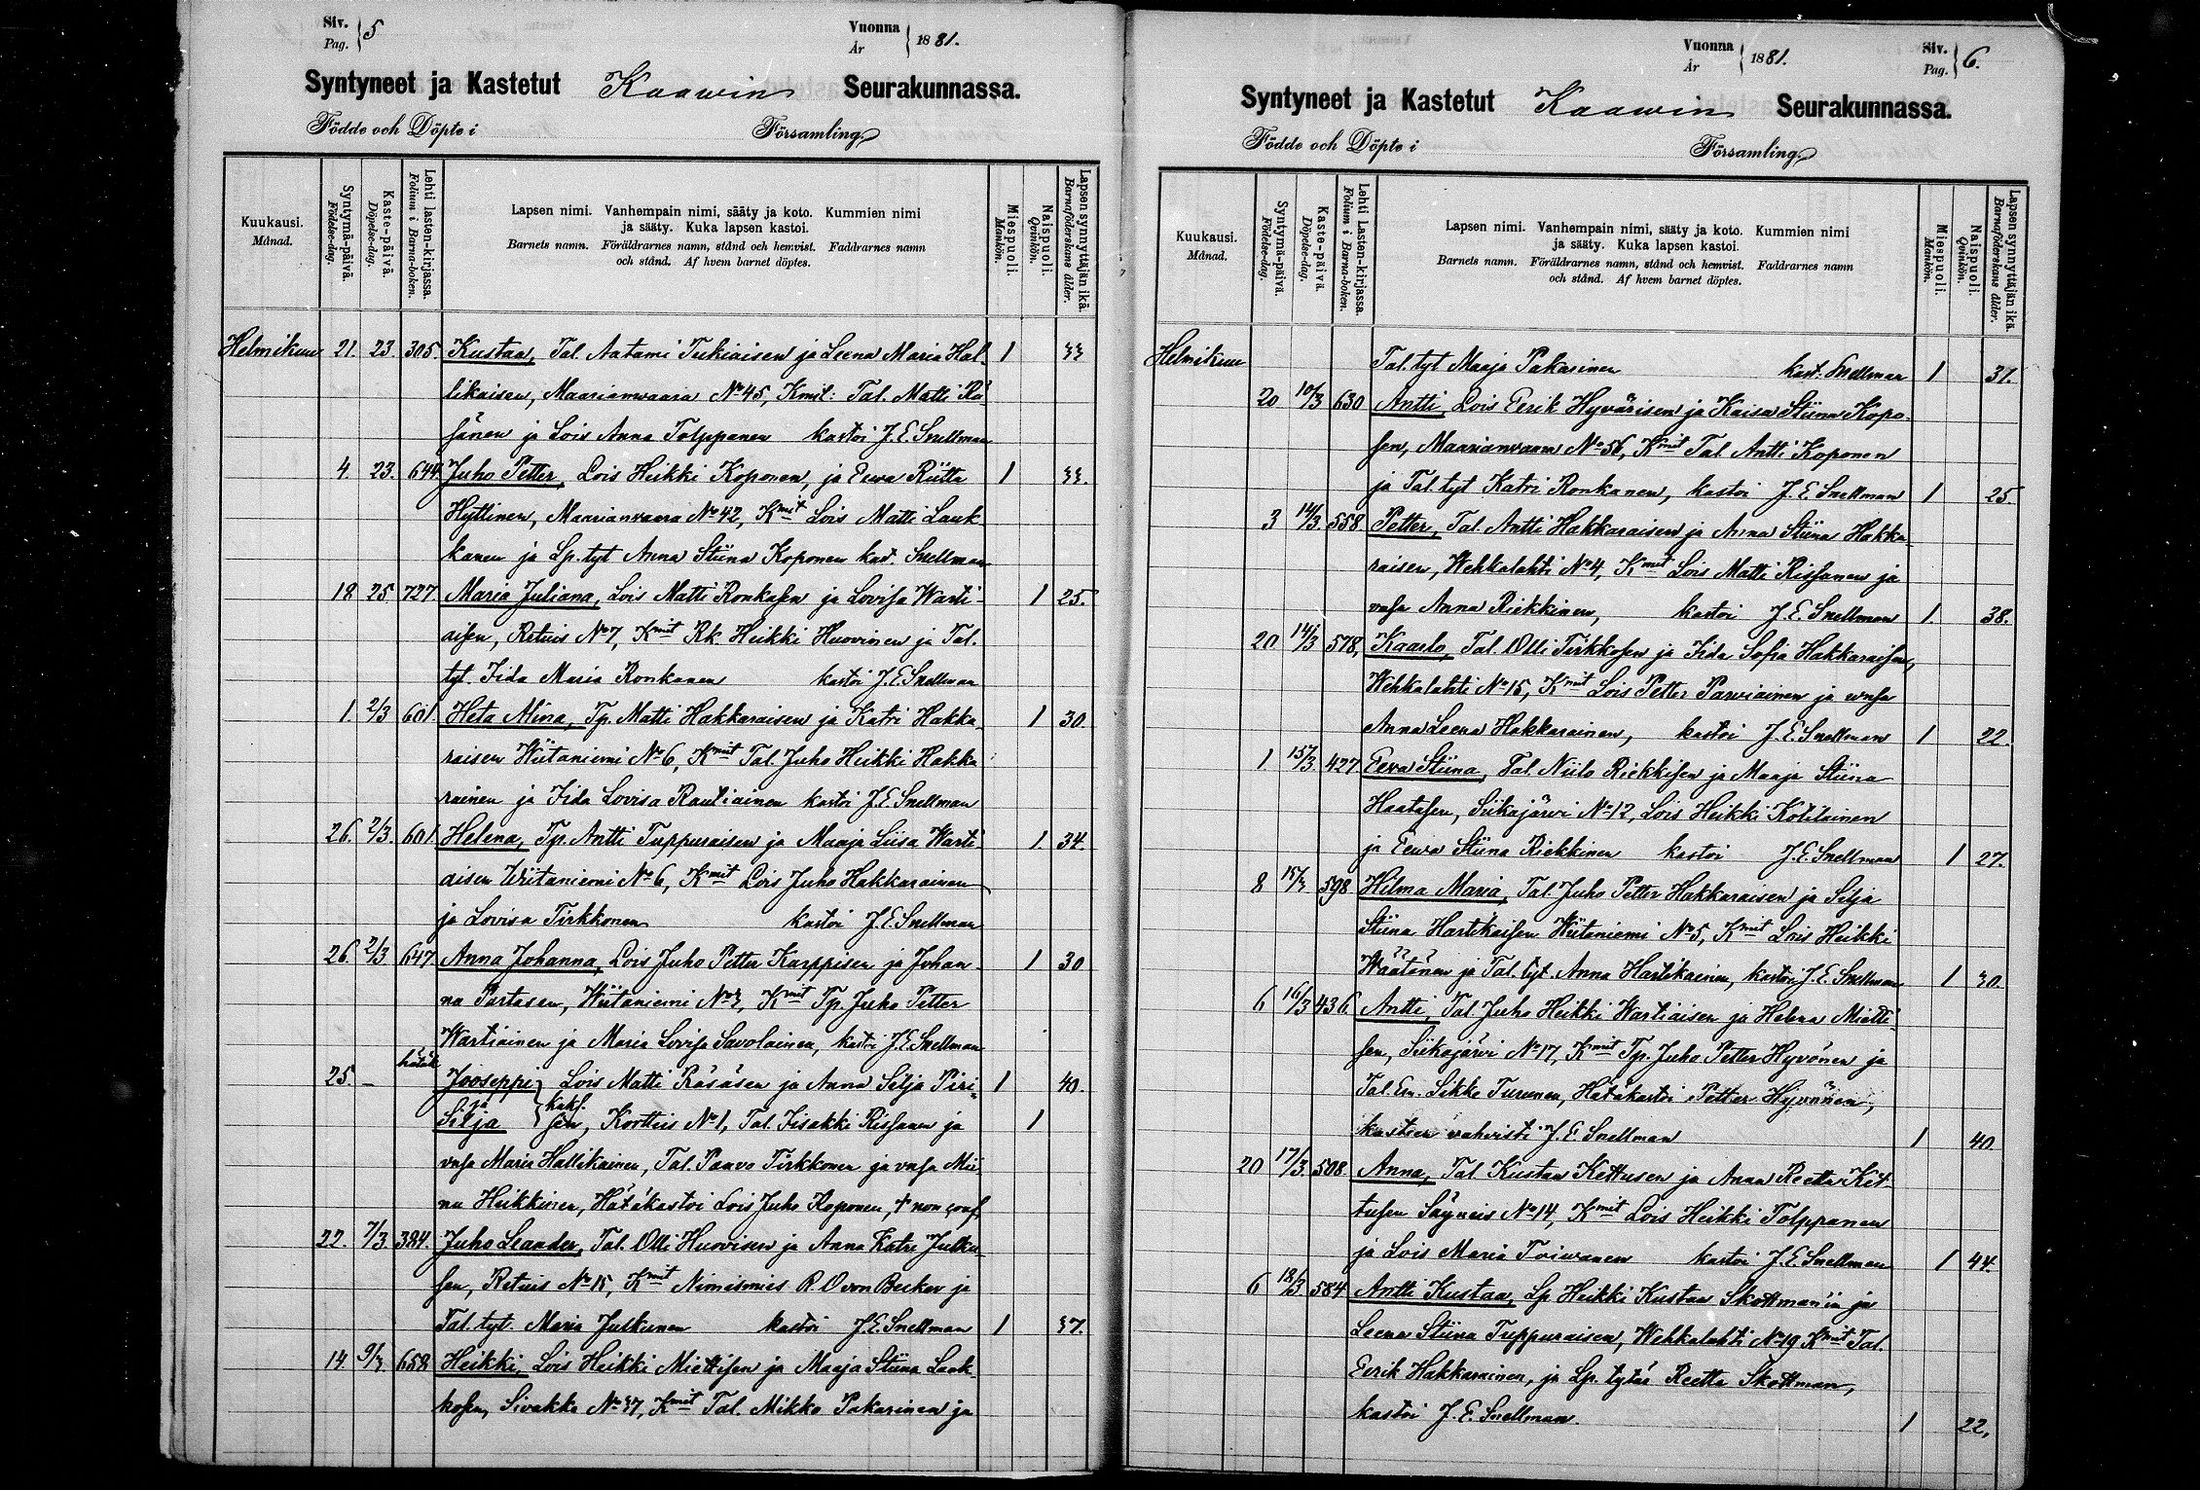 Siv. Pag. 5
Vuonna År 1881.
Syntyneet ja Kastetut Kaawin Seurakunnassa.
Födde och Döpte i Församling
Kuukausi. Månad.
Syntymä-päivä. Födelse-dag.
Kaste-päivä. Döpelse-dag.
Lehti lasten-kirjassa. Folium i Barna-boken.
Lapsen nimi. Vanhempain nimi, sääty ja koto. Kummien nimi
ja sääty. Kuka lapsen kastoi.
Barnets namn. Föräldrarnes namn, stånd och hemvist. Faddrarnes namn
och stånd. Af hvem barnet döptes.
Miespuoli. Mankön.
Naispuoli. Qvinkön.
Lapsen synnyttäjän ikä. Barnaföderskans ålder.
Helmikuu 21. 23. 305 Kustaa, Tal. Aatami Tukiaisen ja Leena Maria Hal- 1 33
likaisen, Maarianwaara No 45, Kmit: Tal. Matti Rä-
sänen ja Lois Anna Tolppanen kastoi J. E. Snellman
4. 23. 644 Juho Petter, Lois Heikki Koponen, ja Eewa Riitta 1 33.
Hyttinen, Maarianwaara No 42, Kmit Lois Matti Lauk
kanen ja Lp. tyt Anna Stiina Koponen kast. Snellman
18 25. 727 Maria Juliana, Lois Matti Ronkasen ja Lovisa Warti- 1 25.
aisen, Retuis No 7, Kmit Rk. Heikki Huovinen ja Tal.
tyt. Iida Maria Ronkanen kastoi J. E. Snellman
1. 2/3 601 Heta Mina, Tp. Matti Hakkaraisen ja Katri Hakka- 1 30.
raisen Wiitaniemi No 6, Kmit Tal. Juho Heikki Hakka
rainen ja Iida Lovisa Rautiainen kastoi J. E. Snellman
26. 2/3. 601 Helena, Tp. Antti Tuppuraisen ja Maaja Liisa Warti- 1. 34.
aisen Wiitaniemi No 6, Kmit Lois Juho Hakkarainen
ja Lovisa Tirkkonen kastoi J. E. Snellman
26. 2/3 647 Anna Johanna, Lois Juho Petter Karppisen ja Johan- 1 30
na Partasen, Wiitaniemi No 3, Kmit Tp. Juho Petter
Wartiainen ja Maria Lovisa Savolainen, kastoi J. E. Snellman
25. — hätäk Jooseppi Lois Matti Räsäsen ja Anna Silja Piri- 1 40.
ja Silja kaks. sen, Korttius No 1, Tal. Iisakki Rissanen ja 1
vmsa Maria Hallikainen, Tal. Paavo Tirkkonen ja vmsa Mii
na Heikkinen, Hätäkastoi Lois Juho Koponen, † non conf.
22. 7/3. 384. Juho Leander, Tal. Olli Huovisen ja Anna Katri Julku-
sen, Retuis No 15, Kmit Nimismies R. O von Becker ja
Tal. tyt. Maria Julkunen kastoi J. E. Snellman 1 37.
14 9/3. 658 Heikki, Lois Heikki Miettisen ja Maaja Stiina Laak-
kosen, Sivakka No 37, Kmit Tal. Mikko Pakarinen ja
Vuonna År 1881.
Siv. Pag. 6.
Syntyneet ja Kastetut Kaawin Seurakunnassa.
Födde och Döpte i Församling
Kuukausi. Månad.
Syntymä-päivä. Födelse-dag.
Kaste-päivä. Döpelse-dag.
Lehti Lasten-kirjassa. Folium i Barna-boken.
Lapsen nimi. Vanhempain nimi, sääty ja koto. Kummien nimi
ja sääty. Kuka lapsen kastoi.
Barnets namn. Föräldrarnes namn, stånd och hemvist. Faddrarnes namn
och stånd. Af hvem barnet döptes.
Miespuoli. Mankön.
Naispuoli. Qvinkön.
Lapsen synnyttäjän ikä. Barnaföderskans ålder.
Helmikuu Tal. tyt Maaja Pakarinen kast. Snellman 1 37.
20 10/3 630 Antti, Lois Eerik Hyvärisen ja Kaisa Stiina Kopo-
sen, Maarianvaara No 56, Kmit Tal. Antti Koponen
ja Tal. tyt Katri Ronkanen, kastoi J. E. Snellman 1 25
3 14/3. 558 Petter, Tal. Antti Hakkaraisen ja Anna Stiina Hakka-
raisen, Wehkalahti No 4, Kmit Lois Matti Rissanen ja
vmsa Anna Riekkinen, kastoi J. E. Snellman 1. 38.
20 14/3 578, Kaarlo, Tal. Olli Tirkkosen ja Iida Sofia Hakkaraisen,
Wehkalahti No 15, Kmit Lois Petter Parviainen ja vmsa
Anna Leena Hakkarainen, kastoi J. E. Snellman 1 22.
1. 15/3 427 Eewa Stiina, Tal. Niilo Riekkisen ja Maaja Stiina
Haatasen, Siikajärvi No 12, Lois Heikki Kotilainen
ja Eewa Stiina Riekkinen kastoi J. E. Snellman 1 27.
8 15/3 598 Hilma Maria, Tal. Juho Petter Hakkaraisen ja Silja
Stiina Hartikaisen Wiitaniemi No 5, Kmit Lois Heikki
Väätänen ja Tal. tyt. Anna Hartikainen, kastoi J. E. Snellman 1 30.
6 16/3 436 Antti, Tal. Juho Heikki Wartiaisen ja Helena Mietti-
sen, Siikajärvi No 17, Kmit Tp. Juho Petter Hyvönen ja
Tal. Em. Sikke Turunen, Hätäkastoi Petter Hyvönen,
kasteen vahvisti J. E. Snellman 1 40.
20 17/3. 508 Anna, Tal. Kustaa Kettusen ja Anna Reetta Ket-
tusen Säyneis No 14, Kmit Lois Heikki Tolppanen
ja Lois Maria Toivanen kastoi J. E. Snellman 1 44.
6 18/3 584 Antti Kustaa, Lp Heikki Kustaa Skottman'in ja
Leena Stiina Tuppuraisen, Wehkalahti No 19 Kmit Tal.
Eerik Hakkarainen, ja Lp. tytär Reetta Skottman,
kastoi J. E. Snellman. 1 22,